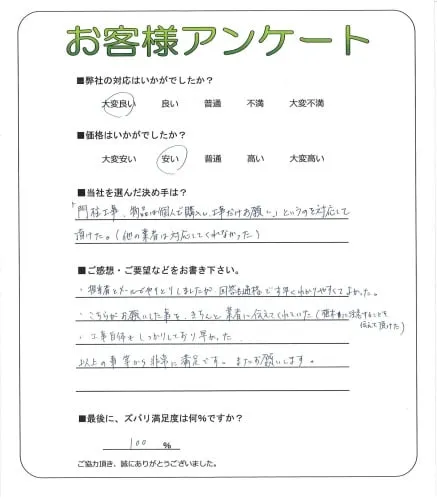 お客様アンケート
■弊社の対応はいかがでしたか？
大変良い 良い 普通 不満 大変不満
■価格はいかがでしたか？
大変安い 安い 普通 高い 大変高い
■当社を選んだ決め手は？
「門柱工事、物品は個人で購入し、工事だけお願い。」というのを対応して
頂けた。(他の業者は対応してくれなかった)
■ご感想・ご要望などをお書き下さい。
・担当者とメールでやりとりしましたが、回答も適格で早くわかりやすくてよかった。
・こちらがお願いした事を、きちんと業者に伝えてくれていた(
に注意することを
伝えて頂けた)
・工事自体もしっかりしており早かった。
以上の事等から非常に満足です。またお願いします。
■最後に、ズバリ満足度は何%ですか？
100 %
ご協力頂き、誠にありがとうございました。